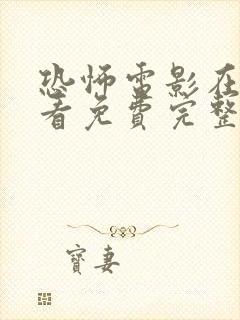 恐怖电影在
看免费完整
寶妻